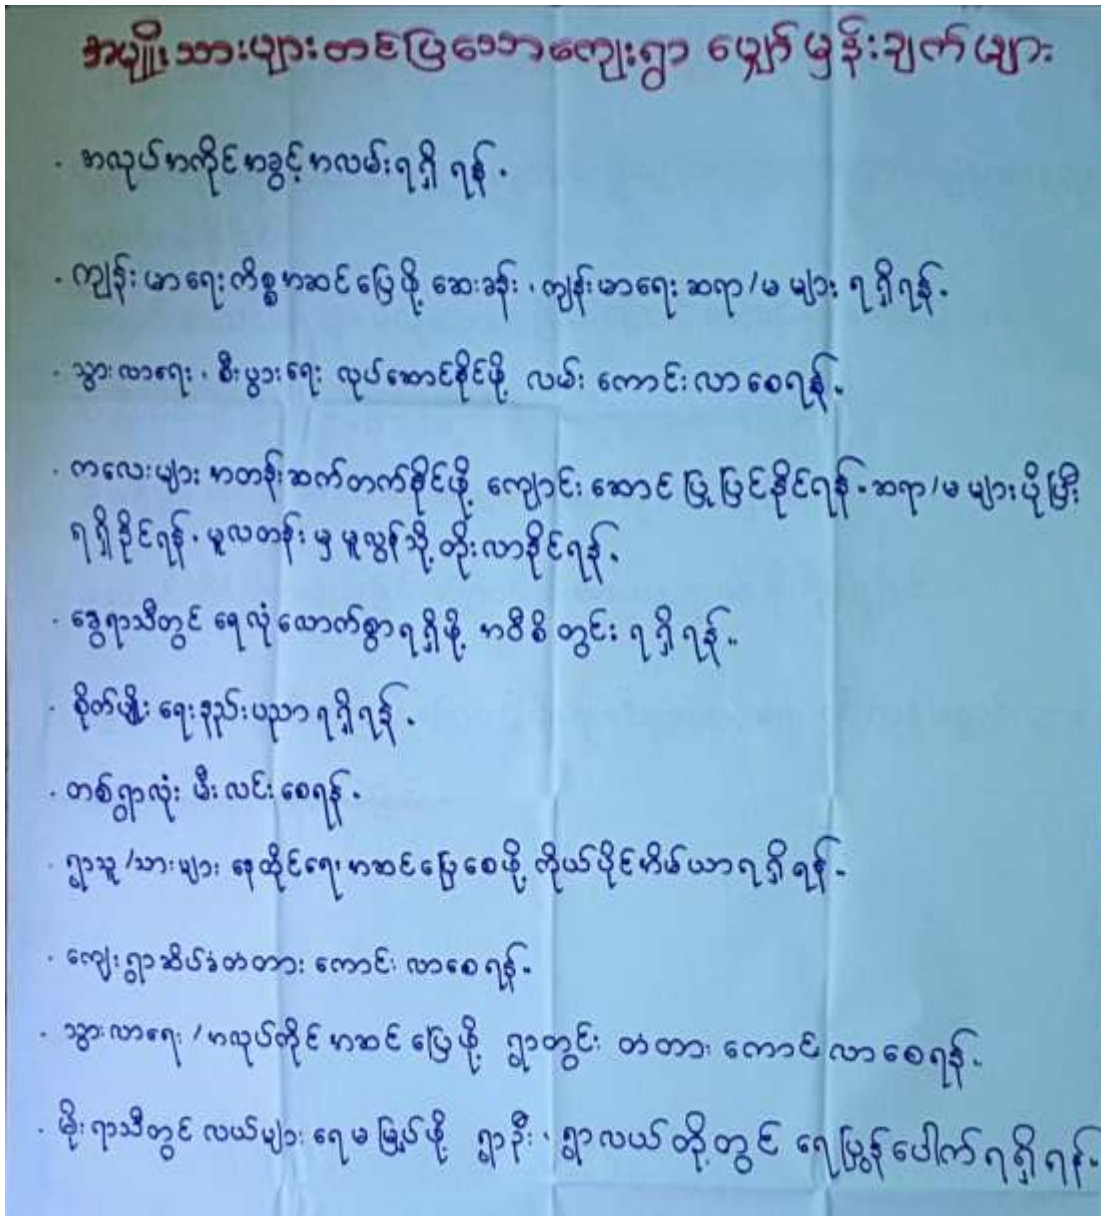 အမျိုးသားများတင်ပြသောကျေးရွာ မျှော်မှန်းချက်များ
· အလုပ်အကိုင်အခွင့်အလမ်းရရှိရန်။
· ကျန်းမာရေးကိစ္စအဆင်ပြေဖို့ ဆေးခန်း၊ ကျန်းမာရေးဆရာ/မများ ရရှိရန်။
· သွားလာရေး၊ စီးပွားရေး လုပ်ဆောင်နိုင်ဖို့ လမ်းကောင်းလာစေရန်။
· ကလေးများ အတန်းဆက်တက်နိုင်ဖို့ ကျောင်းဆောင်ပြုပြင်နိုင်ရန်။ ဆရာ/မများပိုပြီး
ရရှိနိုင်ရန်။ မူလတန်းမှ မူလွန်သို့ တိုးလာနိုင်ရန်။
· နွေရာသီတွင် ရေလုံလောက်စွာရရှိဖို့ အဝီစိတွင်း ရရှိရန်။
· စိုက်ပျိုးရေးနည်းပညာရရှိရန်။
· တစ်ရွာလုံး မီးလင်းစေရန်။
· ရွာသူ/သားများ နေထိုင်ရေးအဆင်ပြေစေဖို့ ကိုယ်ပိုင်အိမ်ယာရရှိရန်။
· ကျေးရွာဆိပ်ခံတံတား ကောင်းလာစေရန်။
· သွားလာရေး/အလုပ်ကိုင်အဆင်ပြေဖို့ ရွာတွင်း တံတား ကောင်းလာစေရန်။
· မိုးရာသီတွင် လယ်များ ရေမမြုပ်ဖို့ ရွာဦး၊ ရွာလယ်တို့တွင် ရေပြွန်ပေါက်ရရှိရန်။